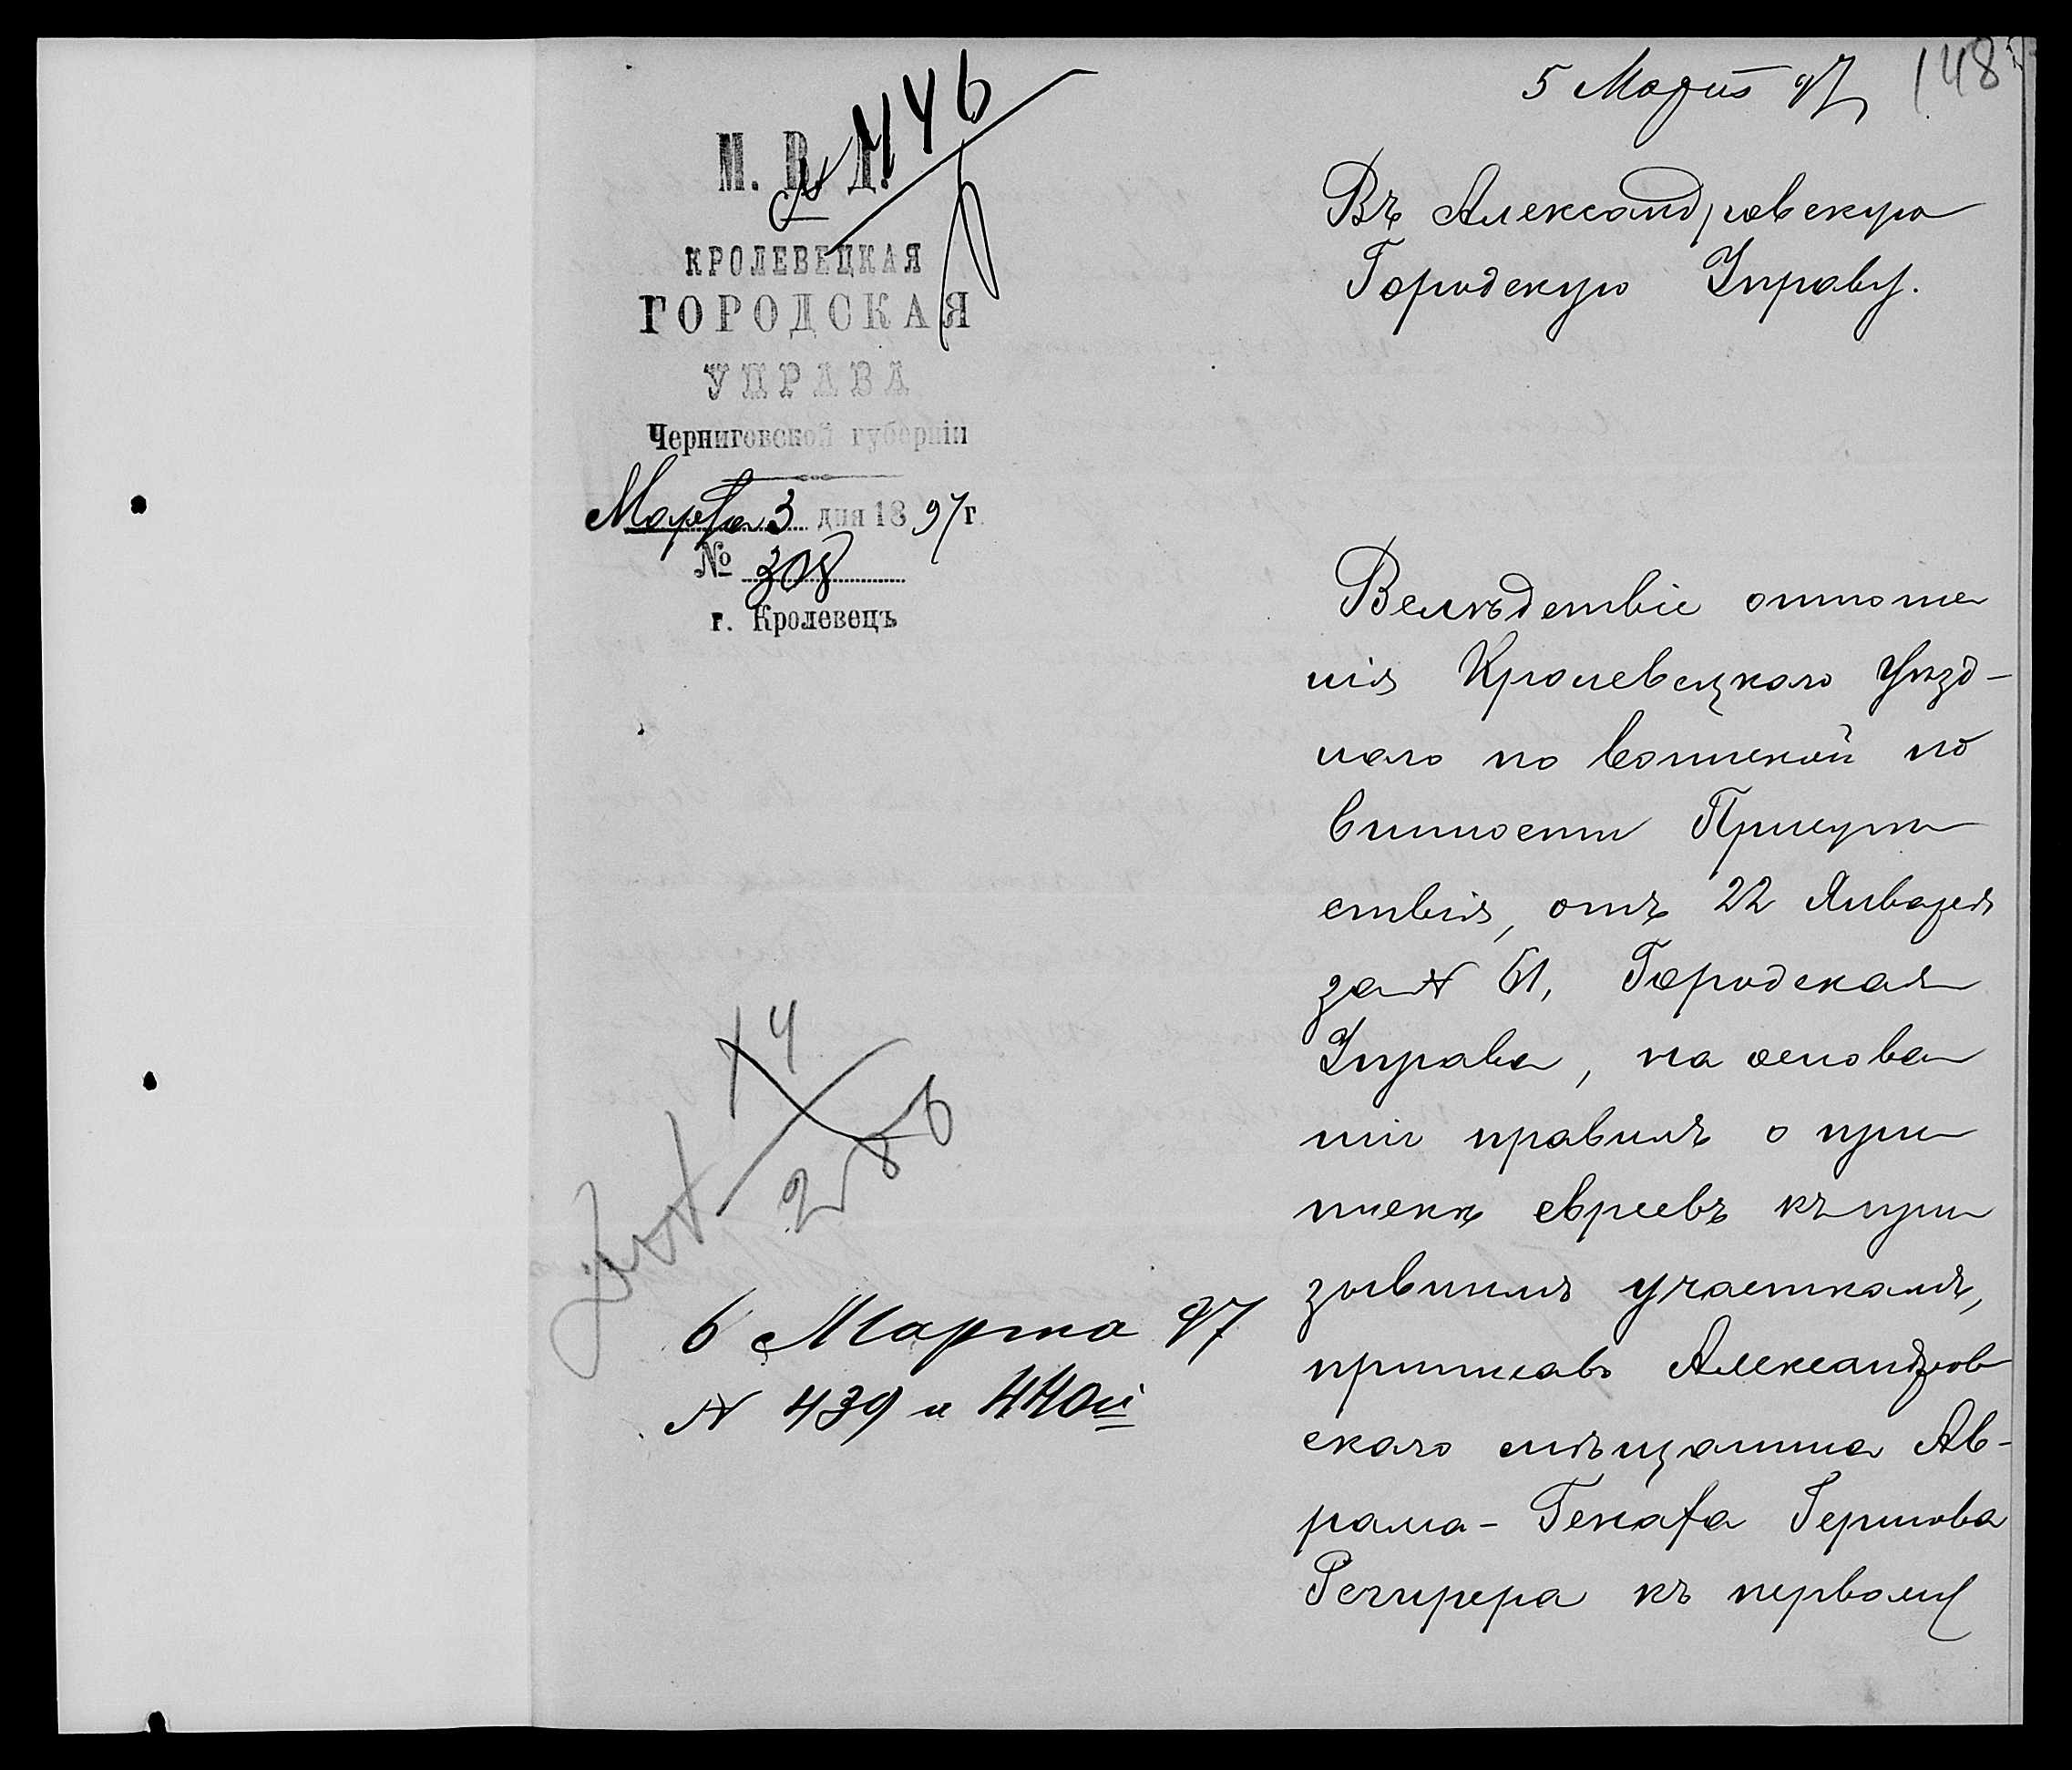 5 Марта 97
148
№ 446
М. В. Д.
КРОЛЕВЕЦКАЯ
ГОРОДСКАЯ
УПРАВА
Черниговской губерніи
Марта 3 дня 1897 г.
№ 308
г. Кролевецъ
Въ Александровскую
Городскую Управу.
Вслѣдствіе отноше
нія Кролевецкаго Уѣзд-
наго по воинской по
винности Присут
ствія, отъ 22 Января
за № 61, Городская
Управа, на основа
ніи правилъ о при
пискѣ евреевъ къ при
зывнымъ участкамъ,
приписавъ Александров
скаго мѣщанина Ав-
рама- Гершова
къ первому
14
286
6 Марта 97
№ 439 и 440й